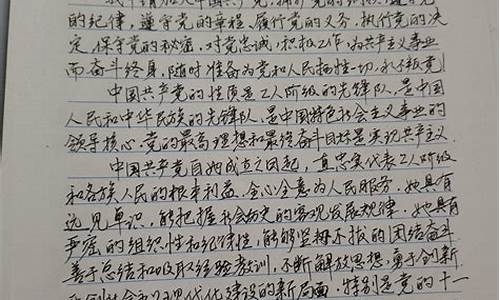 的纪律,遵守党的章程,履行党的义务,执行党的决
定,保守党的秘密,对党忠诚,积极工作,为共产主义事业
而奋斗终身,随时准备为党和人民牺牲一切,永不叛党!
中国共产党的性质是工人阶级的先锋队,是中国
人民和中华民族的先锋队,是中国特色社会主义事业的
领导核心,党的最高理想和最终奋斗目标是实现共产主义.
中国共产党自她成立之日起,直忠实代表工人阶级
和各族人民的根本利益,全心全意为人民服务.她具有
远见卓识,能把握社会历史的客观发展规律.她具有
严密的组织性和纪律性,能够坚持不拔的团结奋斗
善于总结和吸取经验教训,不断解放思想,勇于创新
现代化建设的新局面,特别是党的十一